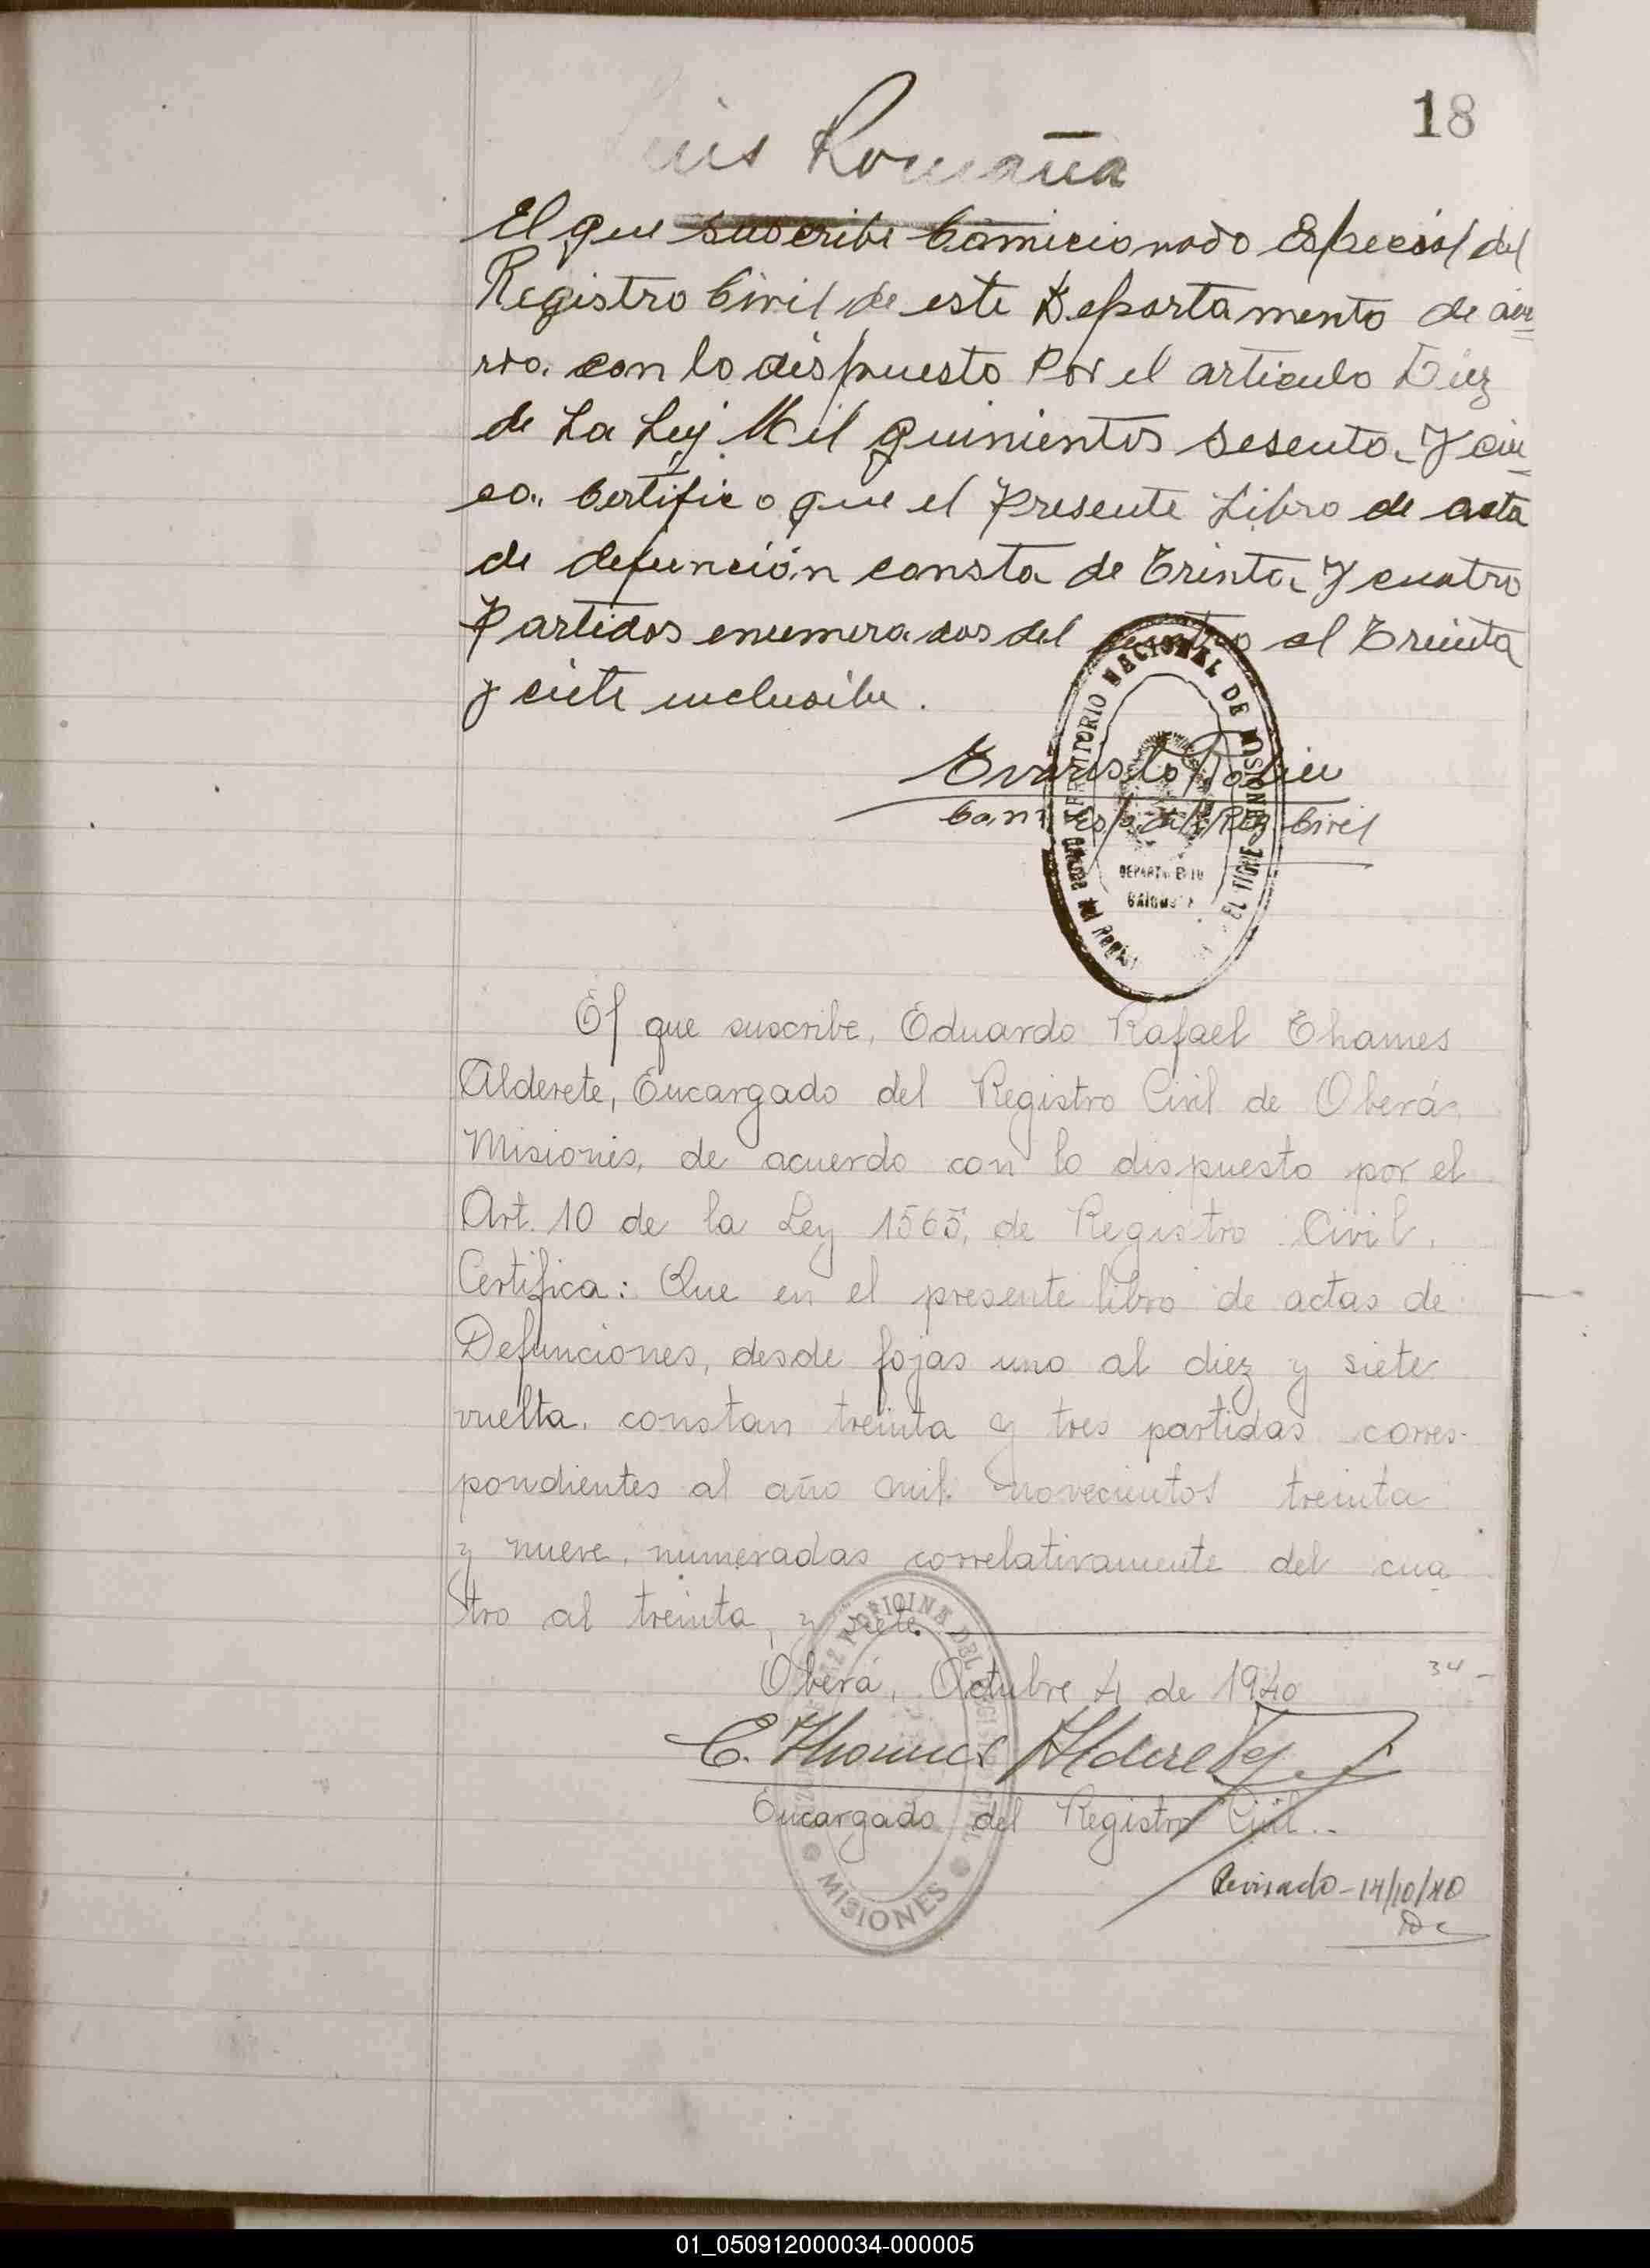 18
Luis Romaña
El que suscribe Comicionado Especial del
Registro Civil de este Departamento de acu=
rdo. con lo dispuesto Por el articulo Diez
de La Ley Mil quinientos sesenta y cin=
co. Certifico que el Presente Libro de acta
de defunción consta de Trinta y cuatro
Partidas enumeradas del cuatro al Treinta
y ciete inclusibe.
Evaristo
Com Esp. del Reg. Civil
TERRITORIO NACIONAL DE MISIONES
EL TIGRE
DEPARTAMENTO
El que suscribe, Eduardo Rafael Thames
Alderete, Encargado del Registro Civil de Oberá,
Misiones, de acuerdo con lo dispuesto por el
Art. 10 de la Ley 1565, de Registro Civil.
Certifica: Que en el presente libro de actas de
Defunciones, desde fojas uno al diez y siete
vuelta, constan treinta y tres partidas corres-
pondientes al año mil novecientos treinta
y nueve, numeradas correlativamente del cua
tro al treinta y siete.
Oberá, Octubre 4 de 1940
34 -
E. Thames Alderete
Encargado del Registro Civil..
OFICINA DEL REGISTRO CIVIL
MISIONES
Revisado - 14/10/40
01_050912000034-000005